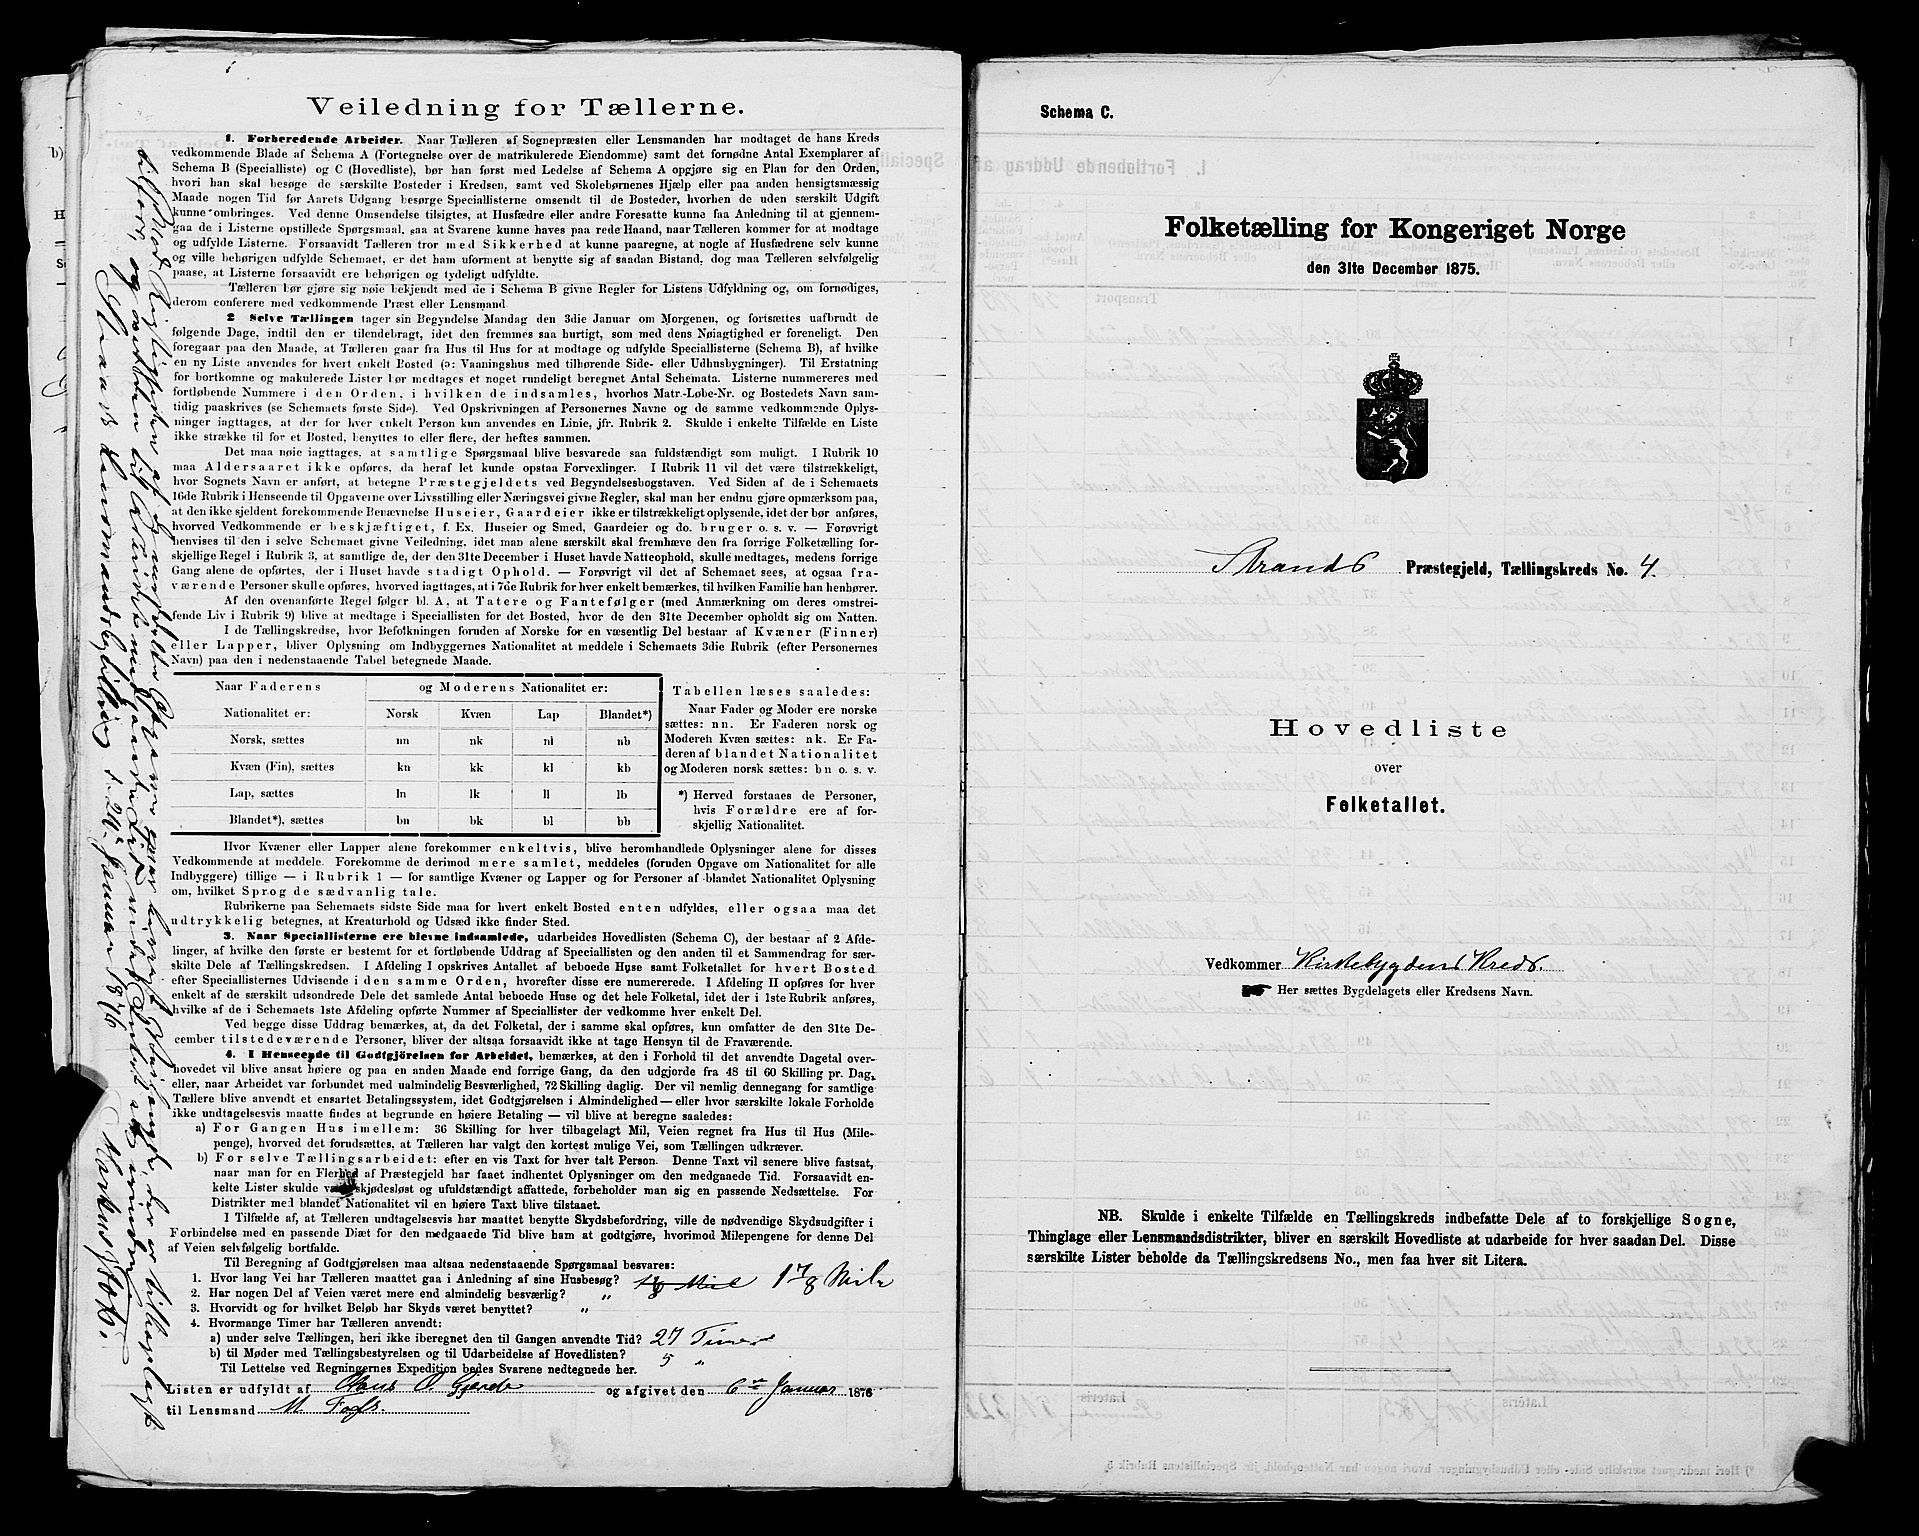 Veiledning for Tællerne.
1. Forberedende Arbeider. Naar Tælleren af Sognepræsten eller Lensmanden har modtaget de hans Kreds
vedkommende Blade af Schema A (Fortegnelse over de matrikulerede Eiendomme) samt det fornødne Antal Exemplarer af
Schema B (Specialliste) og C (Hovedliste), bør han først med Ledelse af Schema A opgjøre sig en Plan for den Orden,
hvori han skal besøge de særskilte Bosteder i Kredsen, samt ved Skolebørnenes Hjælp eller paa anden hensigtsmæssig
Maade nogen Tid før Aarets Udgang besørge Speciallisterne omsendt til de Bosteder, hvorhen de uden særskilt Udgift
kunne ombringes. Ved denne Omsendelse tilsigtes, at Husfædre eller andre Foresatte kunne faa Anledning til at gjennem-
gaa de i Listerne opstillede Spørgsmaal, saa at Svarene kunne haves paa rede Haand, naar Tælleren kommer for at modtage
og udfylde Listerne. Forsaavidt Tælleren tror med Sikkerhed at kunne paaregne, at nogle af Husfædrene selv kunne
og ville behørigen udfylde Schemaet, er det ham uforment at benytte sig af saadan Bistand, dog maa Tælleren selvfølgelig
paase, at Listerne forsaavidt ere behørigen og tydeligt udfyldte.
Tælleren bør gjøre sig nøie bekjendt med de i Schema B givne Regler for Listens Udfyldning og, om fornødiges,
derom conferere med vedkommende Præst eller Lensmand
2 Selve Tællingen tager sin Begyndelse Mandag den 3die Januar om Morgenen, og fortsættes uafbrudt de
følgende Dage, indtil den er tilendebragt, idet den fremmes saa hurtigt, som med dens Nøiagtighed er foreneligt. Den
foregaar paa den Maade, at Tælleren gaar fra Hus til Hus for at modtage og udfylde Speciallisterne (Schema B), af hvilke
en ny Liste anvendes for hvert enkelt Bosted (ɔ: Vaaningshus med tilhørende Side- eller Udhusbygninger). Til Erstatning
for bortkomne og makulerede Lister bør medtages et noget rundeligt beregnet Antal Schemata. Listerne nummereres med
fortløbende Nummere i den Orden, i hvilken de indsamles, hvorhos Matr.-Løbe-Nr. og Bostedets Navn sam-
tidig paaskrives (se Schemaets første Side). Ved Opskrivningen af Personernes Navne og de samme vedkommende Oplys-
ninger iagttages, at der for hver enkelt Person kun anvendes en Linie, jfr. Rubrik 2. Skulde i enkelte Tilfælde en Liste
ikke strække til for et Bosted, benyttes to eller flere, der heftes sammen.
Det maa nøie iagttages, at samtlige Spørgsmaal blive besvarede saa fuldstændigt som muligt. I Rubrik 10
maa Aldersaaret ikke opføres, da heraf let kunde opstaa Forvexlinger. I Rubrik 11 vil det være tilstrækkeligt,
hvor Sognets Navn er anført, at betegne Præstegjeldets ved Begyndelsesbogstaven. Ved Siden af de i Schemaets
16de Rubrik i Henseende til Opgaverne over Livsstilling eller Næringsvei givne Regler, skal man her endnu gjøre opmærksom paa,
at den ikke sjeldent forekommende Benævnelse Huseier, Gaardeier ikke er tilstrækkeligt oplysende, idet der bør anføres,
hvorved Vedkommende er beskjæftiget, f. Ex. Huseier og Smed, Gaardeier og do. bruger o. s. v. — Forøvrigt
henvises til den i selve Schemaet givne Veiledning, idet man alene særskilt skal fremhæve den fra forrige Folketælling for-
skjellige Regel i Rubrik 3, at samtlige de, der den 31te December i Huset havde Natteophold, skulle medtages, medens forrige
Gang alene de opførtes, der i Huset havde stadigt Ophold. — Forøvrigt vil det af Schemaet sees, at ogsaa fra-
værende Personer skulle opføres, hvorved iagttages, at i 7de Rubrik for hver enkelt bemærkes, til hvilken Familie han henhører.
Af den ovenanførte Regel følger bl. A, at Tatere og Fantefølger (med Anmærkning om deres omstrei-
fende Liv i Rubrik 9) blive at medtage i Speciallisten for det Bosted, hvor de den 31te December opholdt sig om Natten.
I de Tællingskredse, hvor Befolkningen foruden af Norske for en væsentlig Del bestaar af Kvæner (Finner)
eller Lapper, bliver Oplysning om Indbyggernes Nationalitet at meddele i Schemaets 3die Rubrik (efter Personernes
Navn) paa den i nedenstaaende Tabel betegnede Maade.
Naar Faderens og Moderens Nationalitet er:
Nationalitet er: Norsk Kvæn Lap Blandet*)
Norsk, sættes nn nk nl nb
Kvæn (Fin), sættes kn kk kl kb
Lap, sættes ln lk ll lb
Blandet*), sættes bn bk bl bb
Tabellen læses saaledes:
Naar Fader og Moder ere norske
sættes: nn. Er Faderen norsk og
Moderen Kvæn sættes: nk. Er Fa-
deren af blandet Nationalitet
og Moderen norsk sættes: bn o. s. v.
*) Herved forstaaes de Personer,
hvis Forældre ere af for-
skjellig Nationalitet.
Hvor Kvæner eller Lapper alene forekommer enkeltvis, blive heromhandlede Oplysninger alene for disses
Vedkommende at meddele. Forekomme de derimod mere samlet, meddeles (foruden Opgave om Nationalitet for alle
Indbyggere) tillige — i Rubrik 1 — for samtlige Kvæner og Lapper og for Personer af blandet Nationalitet Oplysning
om, hvilket Sprog de sædvanlig tale.
Rubrikerne paa Schemaets sidste Side maa for hvert enkelt Bosted enten udfyldes, eller ogsaa maa det
udtrykkelig betegnes, at Kreaturhold og Udsæd ikke finder Sted.
3. Naar Speciallisterne ere blevne indsamlede, udarbeides Hovedlisten (Schema C), der bestaar af 2 Afde-
linger, af hvilke den første er bestemt for et fortløbende Uddrag af Speciallisten og den anden til et Sammendrag for sær-
skilte Dele af Tællingskredsen. I Afdeling I opskrives Antallet af beboede Huse samt Folketallet for hvert Bosted
efter Speciallisternes Udvisende i den samme Orden, hvorefter disse ere numererede. I Afdeling II opføres for hver
enkelt af de særskilt udsondrede Dele det samlede Antal beboede Huse og det hele Folketal, idet der i 1ste Rubrik anføres,
hvilke af de i Schemaets 1ste Afdeling opførte Nummer af Speciallister der vedkomme hver enkelt Del.
Ved begge disse Uddrag bemærkes, at, da det Folketal, der i samme skal opføres, kun omfatter de den 31te De-
cember tilstedeværende Personer, bliver der altsaa forsaavidt ikke at tage Hensyn til de Fraværende.
4. I Henseende til Godtgjörelsen for Arbeidet, bemærkes, at den i Forhold til det anvendte Dagetal over-
hovedet vil blive ansat høiere og paa en anden Maade end forrige Gang, da den udgjorde fra 48 til 60 Skilling pr. Dag,
eller, naar Arbeidet var forbundet med ualmindelig Besværlighed, 72 Skilling daglig. Der vil nemlig dennegang for samtlige
Tællere blive anvendt et ensartet Betalingssystem, idet Godtgjørelsen i Almindelighed — eller hvor særskilte lokale Forholde
ikke undtagelsesvis maatte findes at begrunde en høiere Betaling — vil blive at beregne saaledes:
a) For Gangen Hus imellem: 36 Skilling for hver tilbagelagt Mil, Veien regnet fra Hus til Hus (Mile-
penge), hvorved det forudsættes, at Tælleren har valgt den kortest mulige Vei, som Tællingen udkræver.
b) For selve Tællingsarbeidet: efter en vis Taxt for hver talt Person. Denne Taxt vil senere blive fastsat,
naar man for en Flerhed af Præstegjeld har faaet indhentet Oplysninger om den medgaaede Tid. Forsaavidt en-
kelte Lister skulde være skjødesløst og ufuldstændigt affattede, forbeholder man sig en passende Nedsættelse. For
Distrikter med blandet Nationalitet vil en høiere Taxt blive tilstaaet.
I Tilfælde af, at Tælleren undtagelsesvis har maattet benytte Skydsbefordring, ville de nødvendige Skydsudgifter i
Forbindelse med en passende Diæt for den medgaaede Tid blive ham at godtgjøre, hvorimod Milepengene for denne Del
af Veien selvfølgelig bortfalde.
Til Beregning af Godtgjørelsen maa altsaa nedenstaaende Spørgsmaal besvares:
1. Hvor lang Vei har Tælleren maattet gaa i Anledning af sine Husbesøg? 1 7/8 Mile
2. Har nogen Del af Veien været mere end almindelig besværlig? „
3. Hvorvidt og for hvilket Beløb har Skyds været benyttet? „
4. Hvormange Timer har Tælleren anvendt:
a) under selve Tællingen, heri ikke iberegnet den til Gangen anvendte Tid? 27 Timer
b) til Møder med Tællingsbestyrelsen og til Udarbeidelse af Hovedlisten? 5 „
Til Lettelse ved Regningernes Expedition bedes Svarene nedtegnede her.
Listen er udfyldt af Hans O. Gjerde og afgivet den 6te Januar 1876
til Lensmand M. Fogs.
Schema C.
Folketælling for Kongeriget Norge
den 31te December 1875.
Strands Præstegjeld, Tællingskreds No. 4.
Hovedliste
over
Folketallet.
Vedkommer Kirkebygdens Kreds.
Her sættes Bygdelagets eller Kredsens Navn.
NB. Skulde i enkelte Tilfælde en Tællingskreds indbefatte Dele af to forskjellige Sogne,
Thinglage eller Lensmandsdistrikter, bliver en særskilt Hovedliste at udarbeide for hver saadan Del. Disse
særskilte Lister beholde da Tællingskredsens No., men faa hver sit Litera.